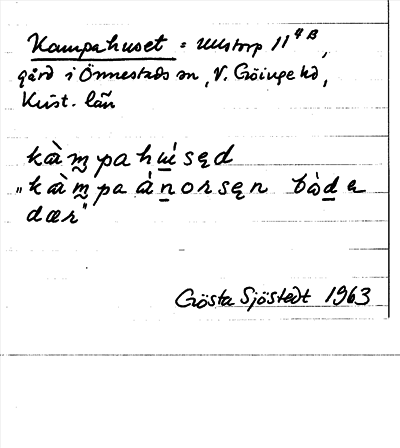 Kampahuset = Ullstorp 11⁴ᴮ,
gård i Önnestads sn, V. Göinge hd,
Krist. län
kàm̲pahú̲sęd
"kàm̲pa án̲orsęn bòd̲a
dær"
Gösta Sjöstedt 1963